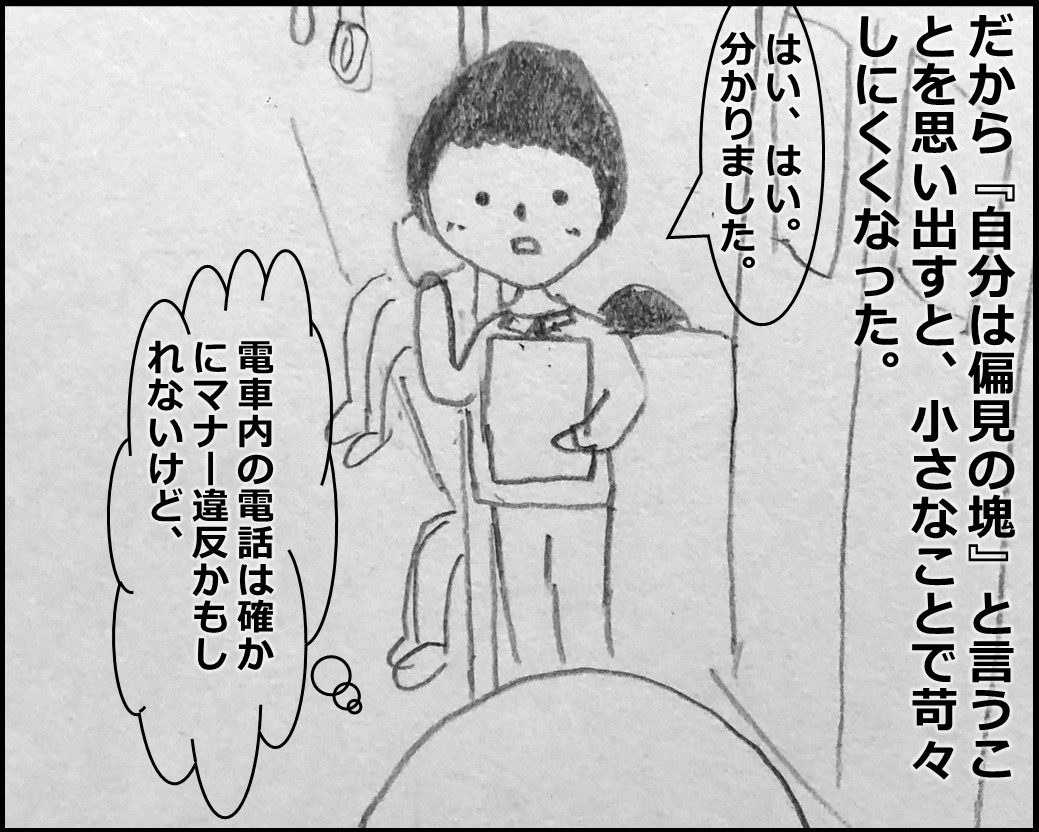 だから『自分は偏見の塊』と言うこ
とを思い出すと、小さなことで苛々
しにくくなった。
はい、はい。
分かりました。
電車内の電話は確か
にマナー違反かもし
れないけど、